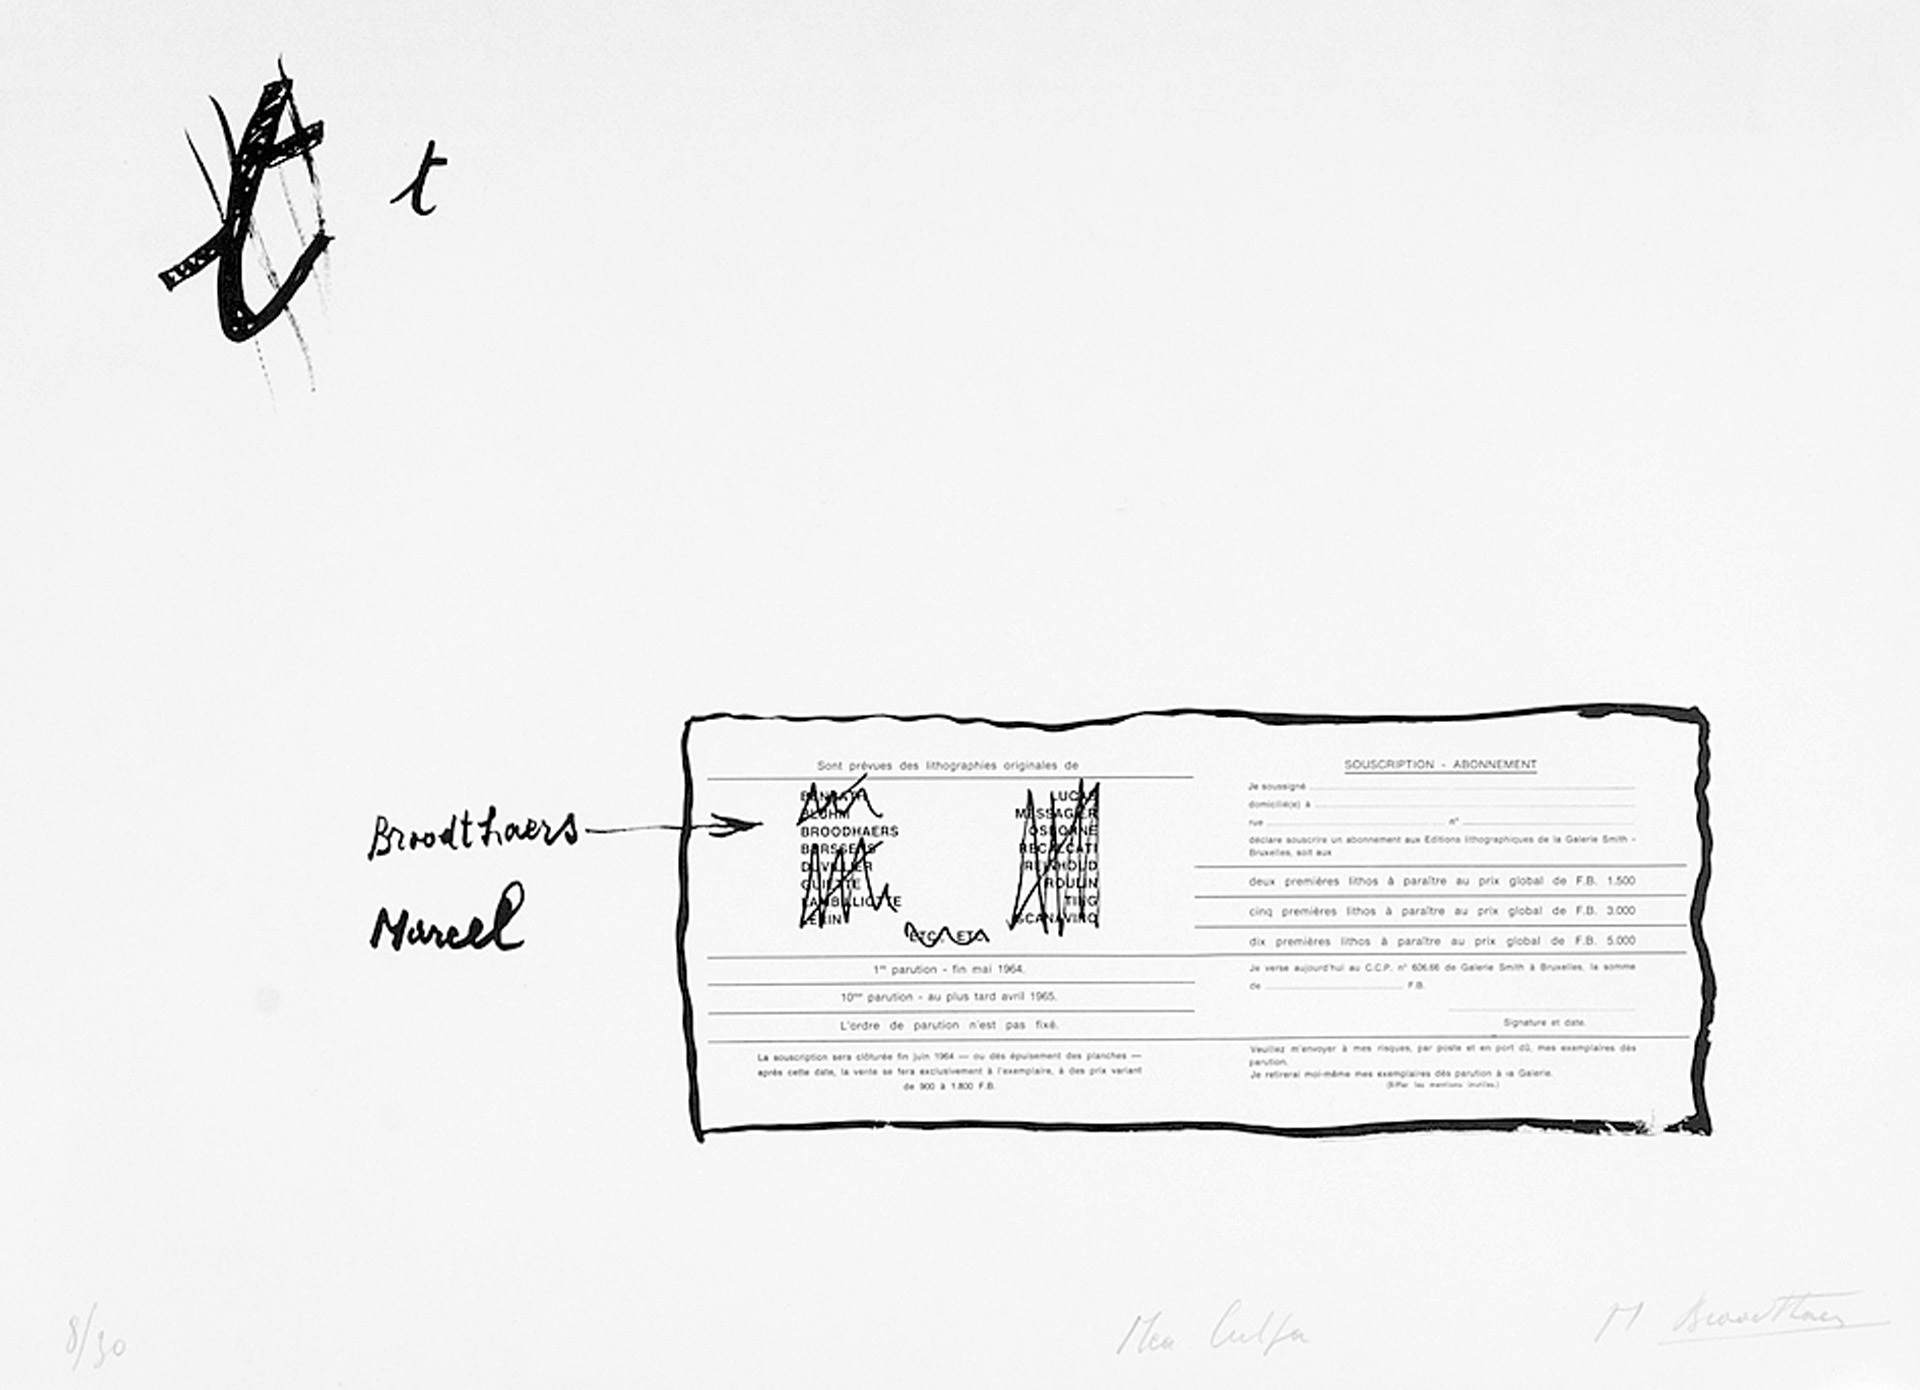 t
t
Broodthaers
Marcel
Sont prévues des lithographies originales de
BENRATH
BLUHM
BROODHAERS
BORSSENS
DUVILLIER
GUIETTE
LAMBILLIOTTE
LERIN
LUCAS
MESSAGIER
OSBORNE
RECALCATI
REINHOUD
ROULIN
TING
SCANAVINO
ETC. ETC.
1re parution - fin mai 1964.
10me parution - au plus tard avril 1965.
L'ordre de parution n'est pas fixé.
La souscription sera clôturée fin juin 1964 — ou dès épuisement des planches —
après cette date, la vente se fera exclusivement à l'exemplaire, à des prix variant
de 900 à 1.800 F.B.
SOUSCRIPTION - ABONNEMENT
Je soussigné
domicilié(e) à
rue n°
déclare souscrire un abonnement aux Editions lithographiques de la Galerie Smith -
Bruxelles, soit aux
deux premières lithos à paraître au prix global de F.B. 1.500
cinq premières lithos à paraître au prix global de F.B. 3.000
dix premières lithos à paraître au prix global de F.B. 5.000
Je verse aujourd'hui au C.C.P. n° 606.66 de Galerie Smith à Bruxelles, la somme
de F.B.
Signature et date.
Veuillez m'envoyer à mes risques, par poste et en port dû, mes exemplaires dès
parution.
Je retirerai moi-même mes exemplaires dès parution à la Galerie.
(Biffer les mentions inutiles.)
8/30
Mea Culpa
M Broodthaers